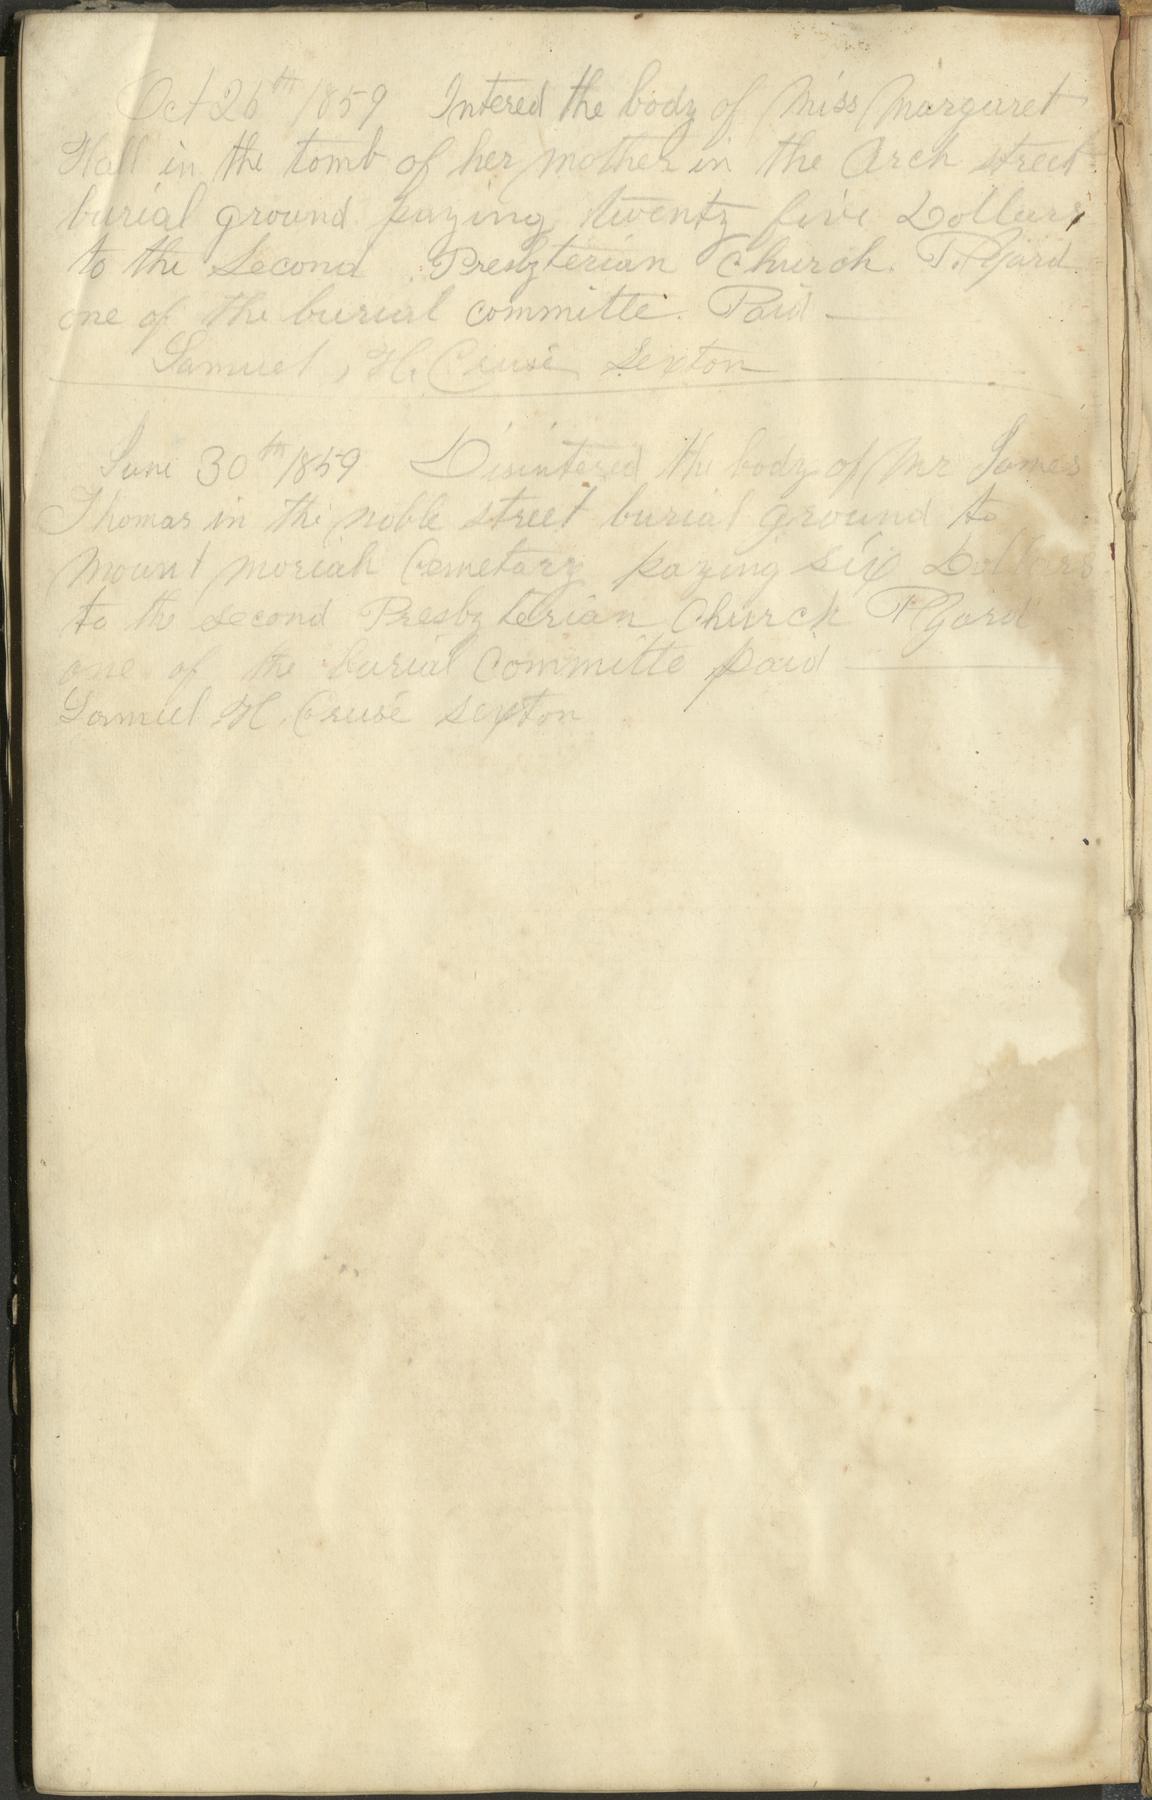 Oct 26th 1859 Intered the body of Miss Margaret
Hall in the tomb of her mother in the Arch street
burial ground paying twenty five Dollars
to the Second Presbyterian Church. P. Gard
one of the burial committe. Paid —
Samuel, H. Cruse Sexton
June 30th 1859 Disintered the body of Mr James
Thomas in the noble street burial ground to
Mount moriah Cemetary paying six Dollars
to the second Presbyterian Church P Gard
one of the burial committe paid —
Samuel H. Crusé sexton